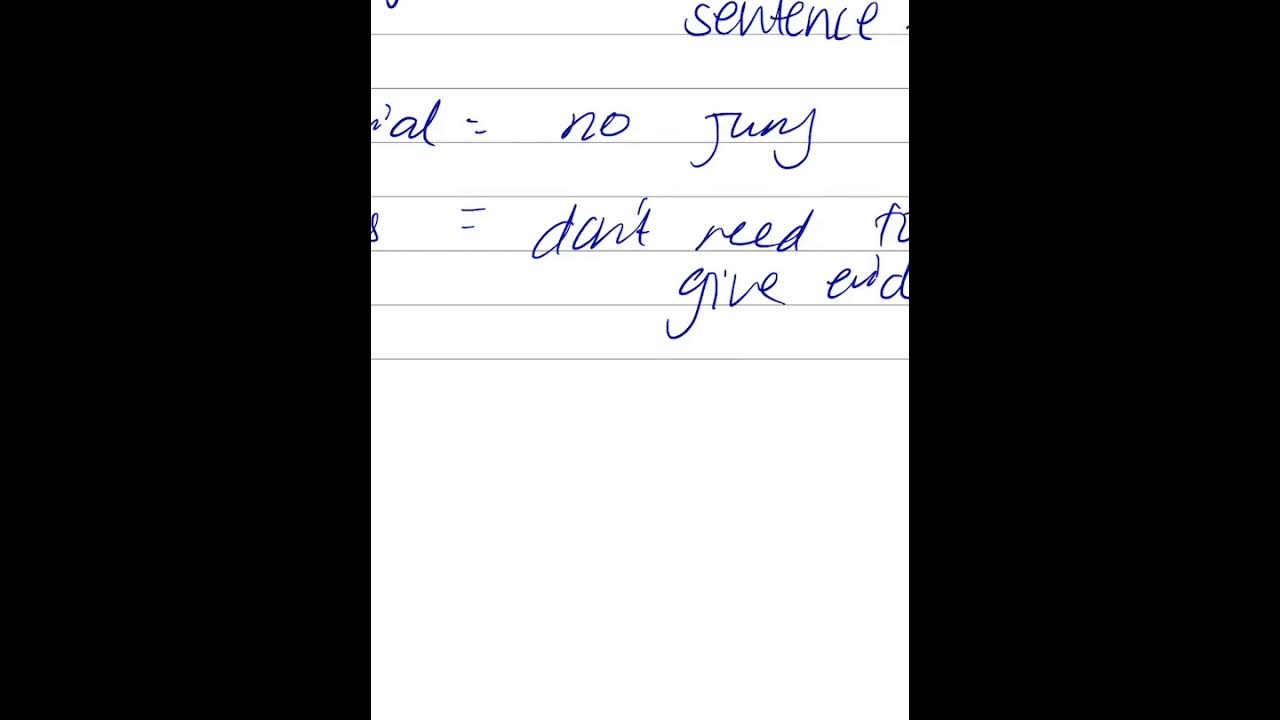 sentence
ial = no jury
s = don't need to
give evid